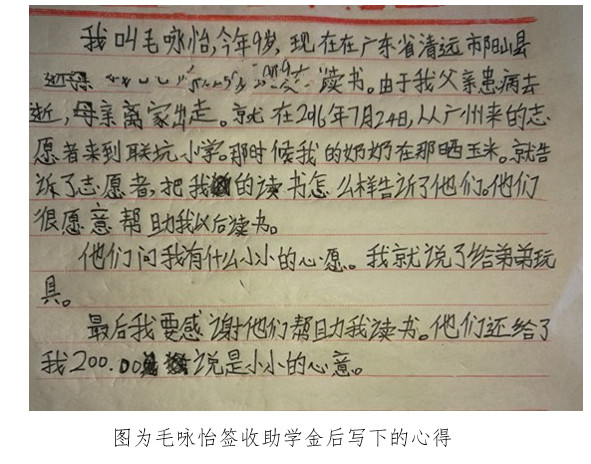 我叫毛咏怡,今年9岁,现在在广东省清远市阳山县
读书。由于我父亲患病去
逝,母亲离家出走。就在2016年7月24日,从广州来的志
愿者来到联坑小学。那时候我的奶奶在那晒玉米。就告
诉了志愿者,把我的读书怎么样告诉了他们。他们
很愿意帮助我以后读书。
他们问我有什么小小的心愿。我就说了给弟弟玩
具。
最后我要感谢他们帮助我读书。他们还给了
我200.00 说是小小的心意。
图为毛咏怡签收助学金后写下的心得